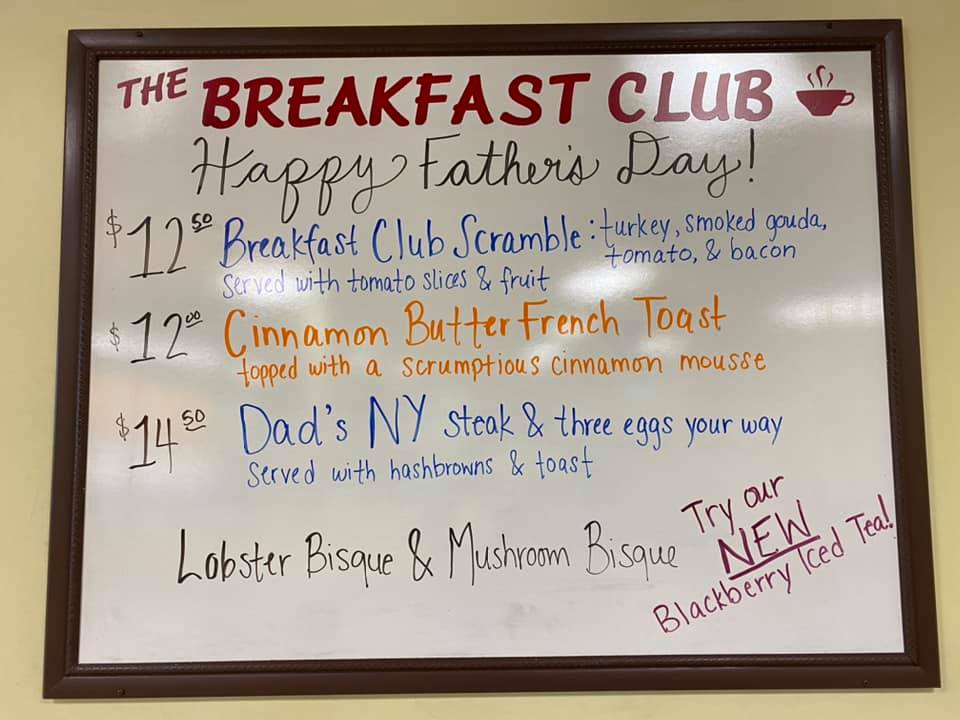 THE BREAKFAST CLUB
Happy Father's Day!
$12.50 Breakfast Club Scramble: turkey, smoked gouda,
tomato, & bacon
Served with tomato slices & fruit
$12.00 Cinnamon Butter French Toast
topped with a scrumptious cinnamon mousse
$14.50 Dad's NY steak & three eggs your way
Served with hashbrowns & toast
Lobster Bisque & Mushroom Bisque
Try our
NEW
Blackberry Iced Tea!